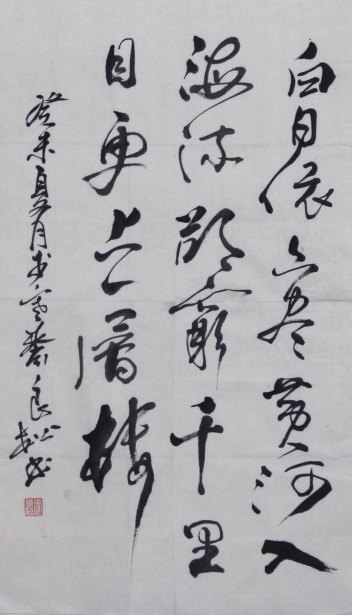 白日依山尽黄河入
海流欲窮千里
目更上一層楼
癸未夏月书良松书